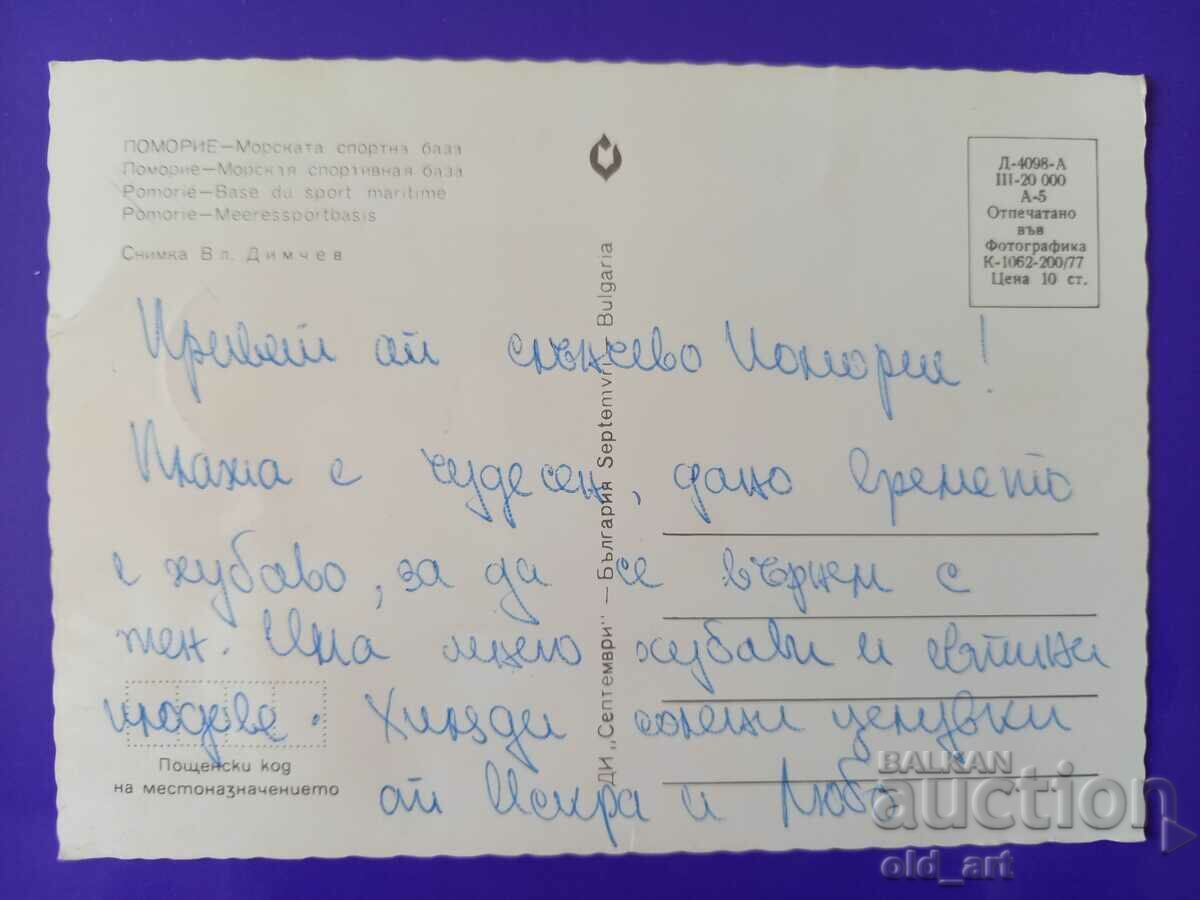 ПОМОРИЕ—Морската спортна база
Поморие—Морская спортивная база
Pomorie—Base du sport maritime
Pomorie—Meeressportbasis
Снимка Вл. Димчев
Д-4098-А
III-20 000
А-5
Отпечатано
във
Фотографика
К-1062-200/77
Цена 10 ст.
Привет от слънчево Поморие!
Плажа е чудесен, дано времето
е хубаво, за да се върнем с
тен. Има много хубави и евтини
плодове. Хиляди солени целувки
от Искра и Любо
ДИ „Септември" — България Septemvri — Bulgaria
Пощенски код
на местоназначението
BALKAN
auction
old_art